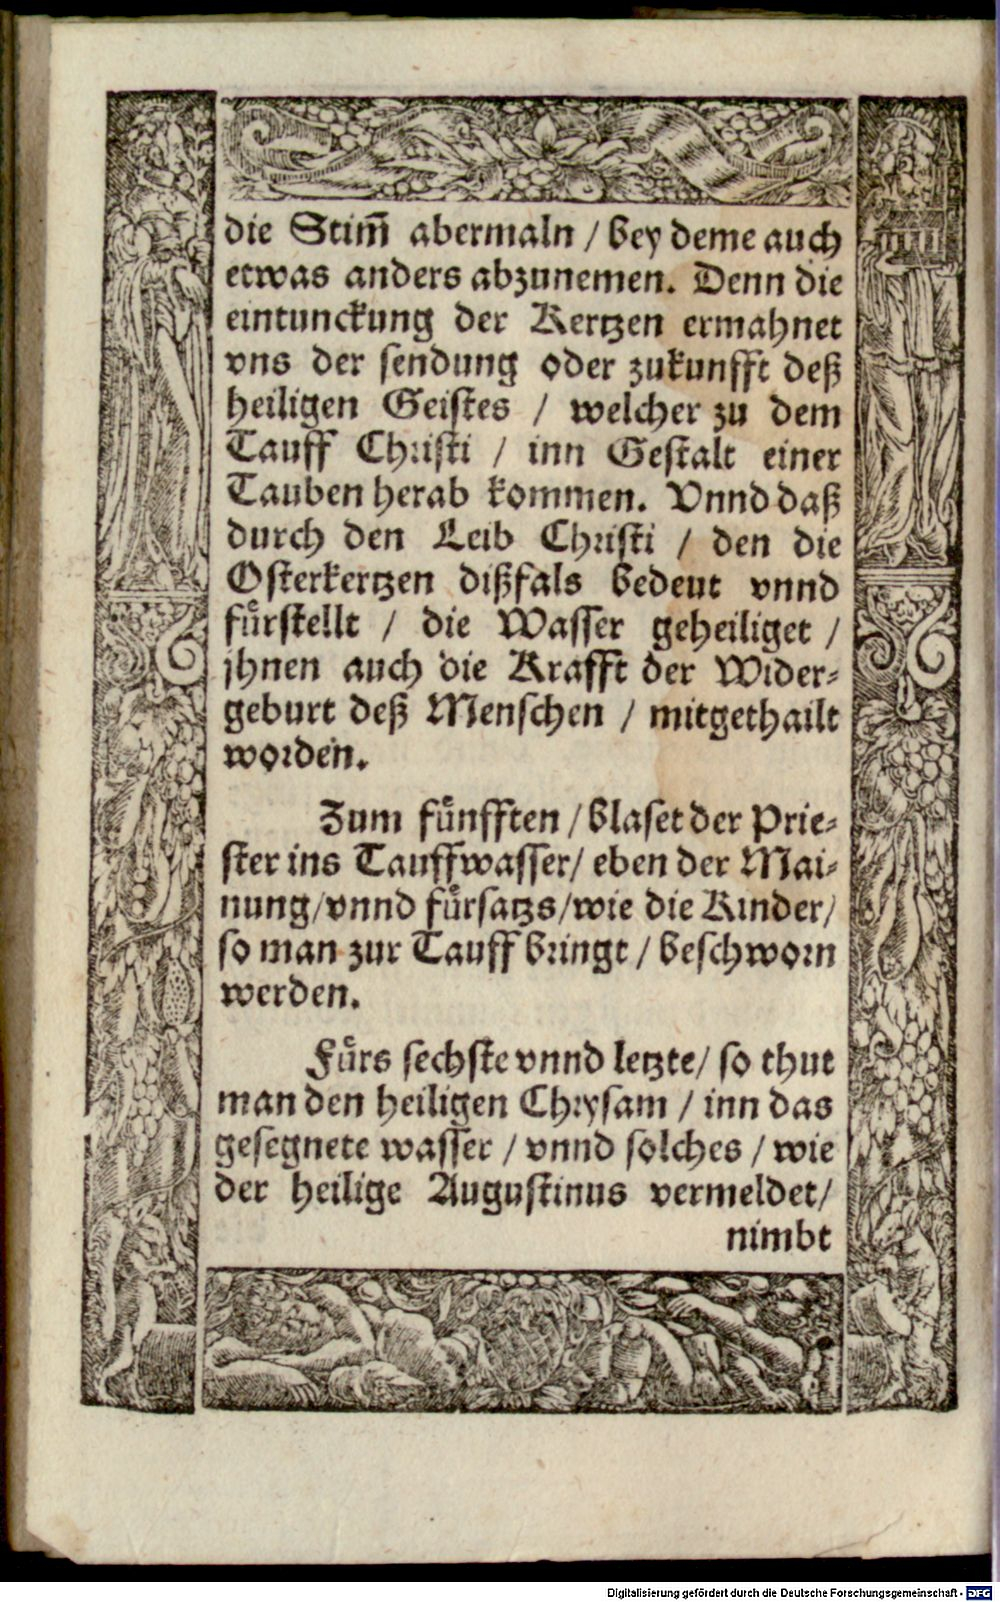 die Stim̃ abermaln / bey deme auch
etwas anders abzunemen. Denn die
eintunckung der Kertzen ermahnet
vns der sendung oder zukunfft deß
heiligen Geistes / welcher zu dem
Tauff Christi / inn Gestalt einer
Tauben herab kommen. Vnnd daß
durch den Leib Christi / den die
Osterkertzen dißfals bedeut vnnd
fuͤrstellt / die Wasser geheiliget /
jhnen auch die Krafft der Wider-
geburt deß Menschen / mitgethailt
worden.
Zum fuͤnfften / blaset der Prie-
ster ins Tauffwasser / eben der Mai-
nung / vnnd fuͤrsatzs / wie die Kinder /
so man zur Tauff bringt / beschworn
werden.
Fuͤrs sechste vnnd letzte / so thut
man den heiligen Chrysam / inn das
gesegnete wasser / vnnd solches / wie
der heilige Augustinus vermeldet /
nimbt
Digitalisierung gefördert durch die Deutsche Forschungsgemeinschaft - DFG